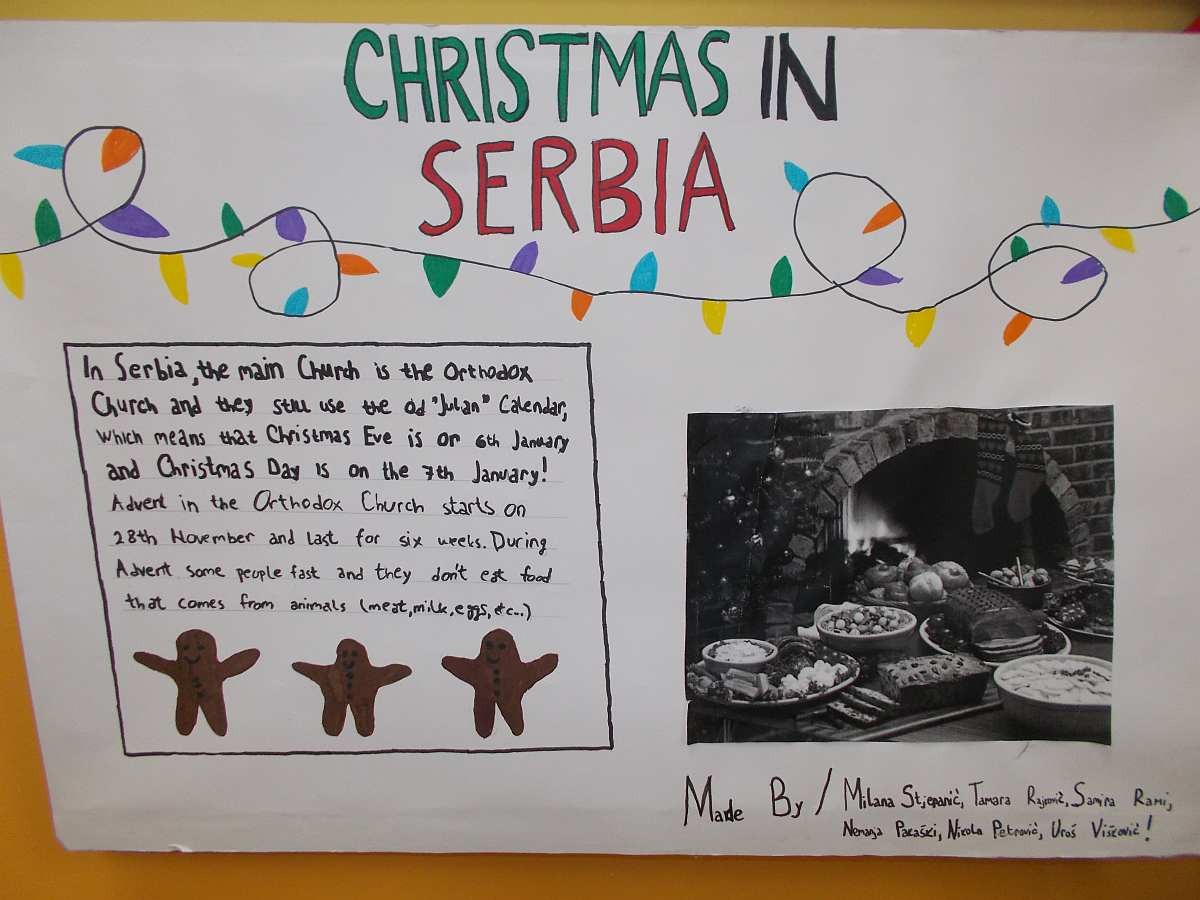 CHRISTMAS IN
SERBIA
In Serbia, the main Church is the Orthodox
Church and they still use the old "Julan" Calendar,
which means that Christmas Eve is on 6th January
and Christmas Day is on the 7th January!
Advent in the Orthodox Church starts on
28th November and last for six weeks. During
Advent some people fast and they don't eat food
that comes from animals (meat, milk, eggs, etc...)
Made By / Milana Stjepanić, Tamara Samira Rami,
Nemanja Nikola Petrović, Uroš Višković!